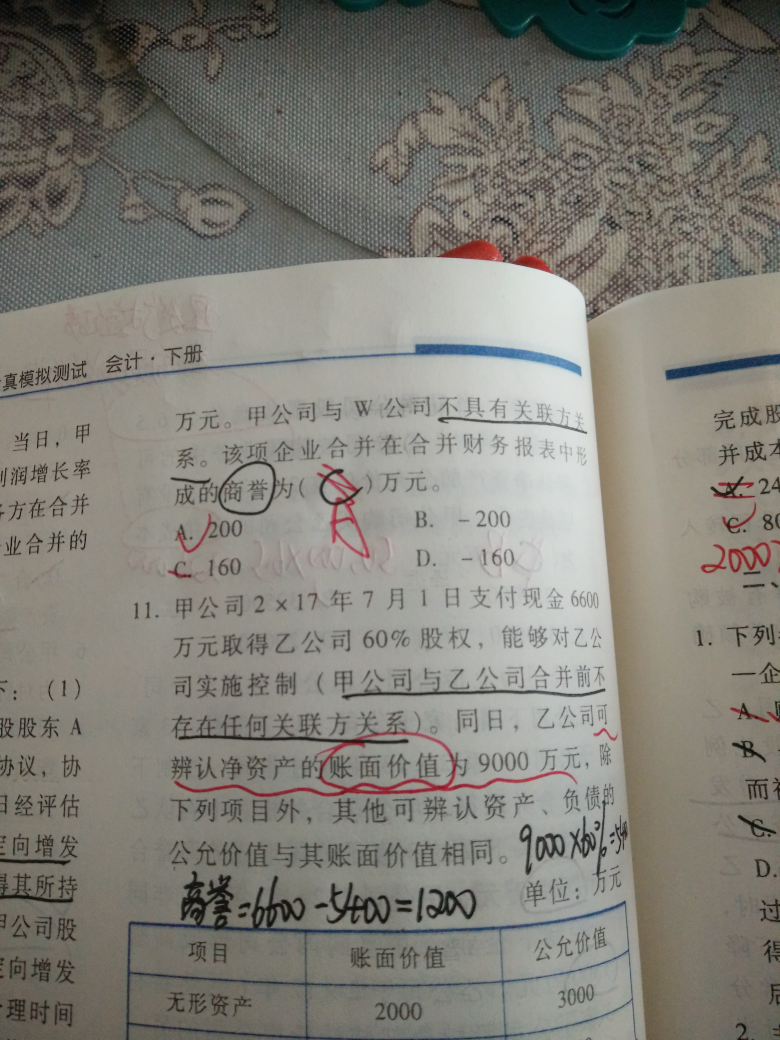 真模拟测试 会计·下册
当日,甲
利润增长率
各方在合并
业合并的
下:(1)
股股东 A
协议,协
日经评估
定向增发
得其所持
甲公司股
定向增发
理时间
万元。甲公司与 W 公司不具有关联方关
系。该项企业合并在合并财务报表中形
成的商誉为( )万元。
A. 200 B. -200
C. 160 D. -160
11. 甲公司 2×17 年 7 月 1 日支付现金 6600
万元取得乙公司 60% 股权,能够对乙公
司实施控制(甲公司与乙公司合并前不
存在任何关联方关系)。同日,乙公司可
辨认净资产的账面价值为 9000 万元,除
下列项目外,其他可辨认资产、负债的
公允价值与其账面价值相同。
9000×60%=5400
商誉=6600-5400=1200
单位:万元
项目 账面价值 公允价值
无形资产 2000 3000
完成股
并成本
A. 24
C. 80
2000
二、
1. 下列
一企
A.
B.
而
C.
D.
过
得
后
2.